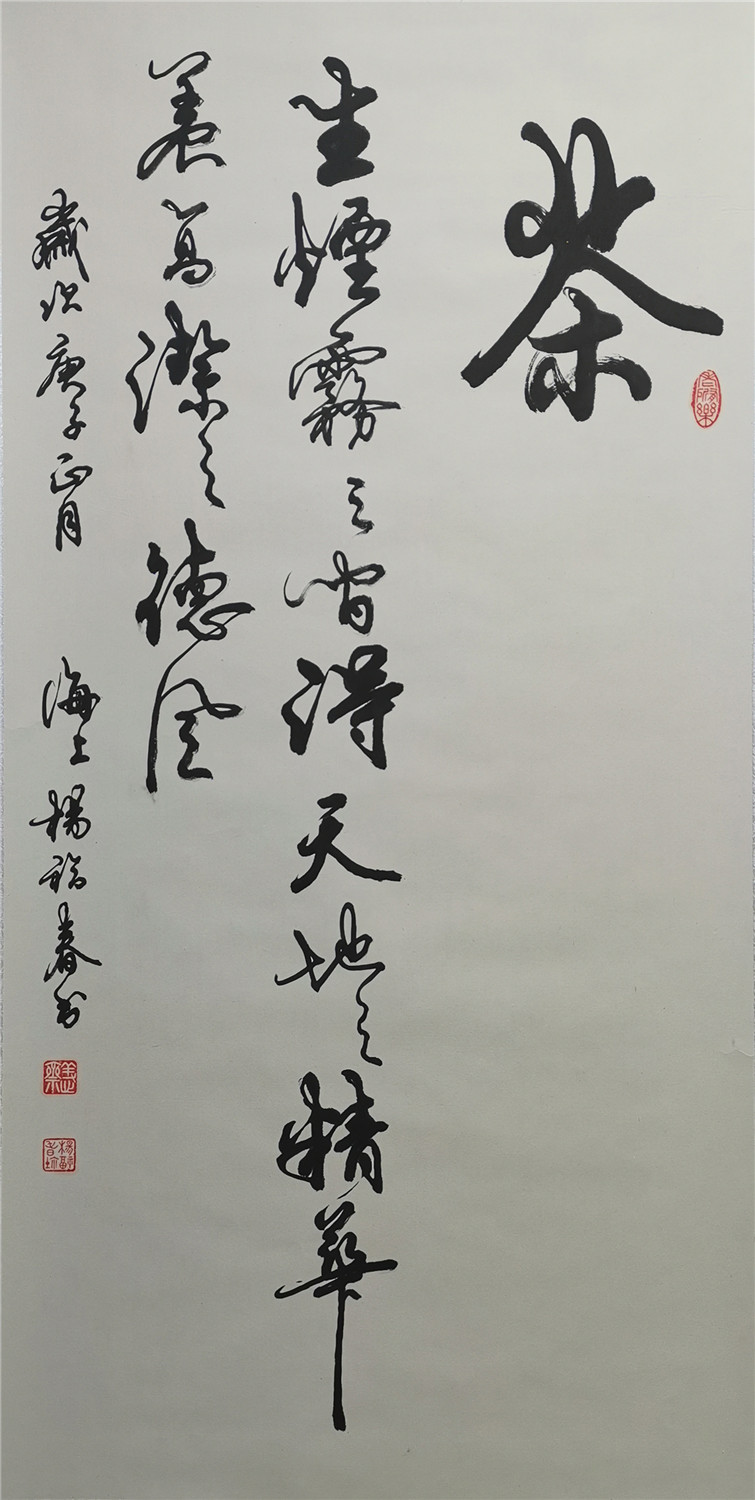 茶
生煙霧之間得天地之精華
養高潔之德風
歲次庚子正月 海上楊福春書